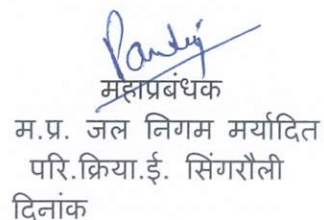 महाप्रबंधक
म.प्र. जल निगम मर्यादित
परि.क्रिया.ई. सिंगरौली
दिनांक